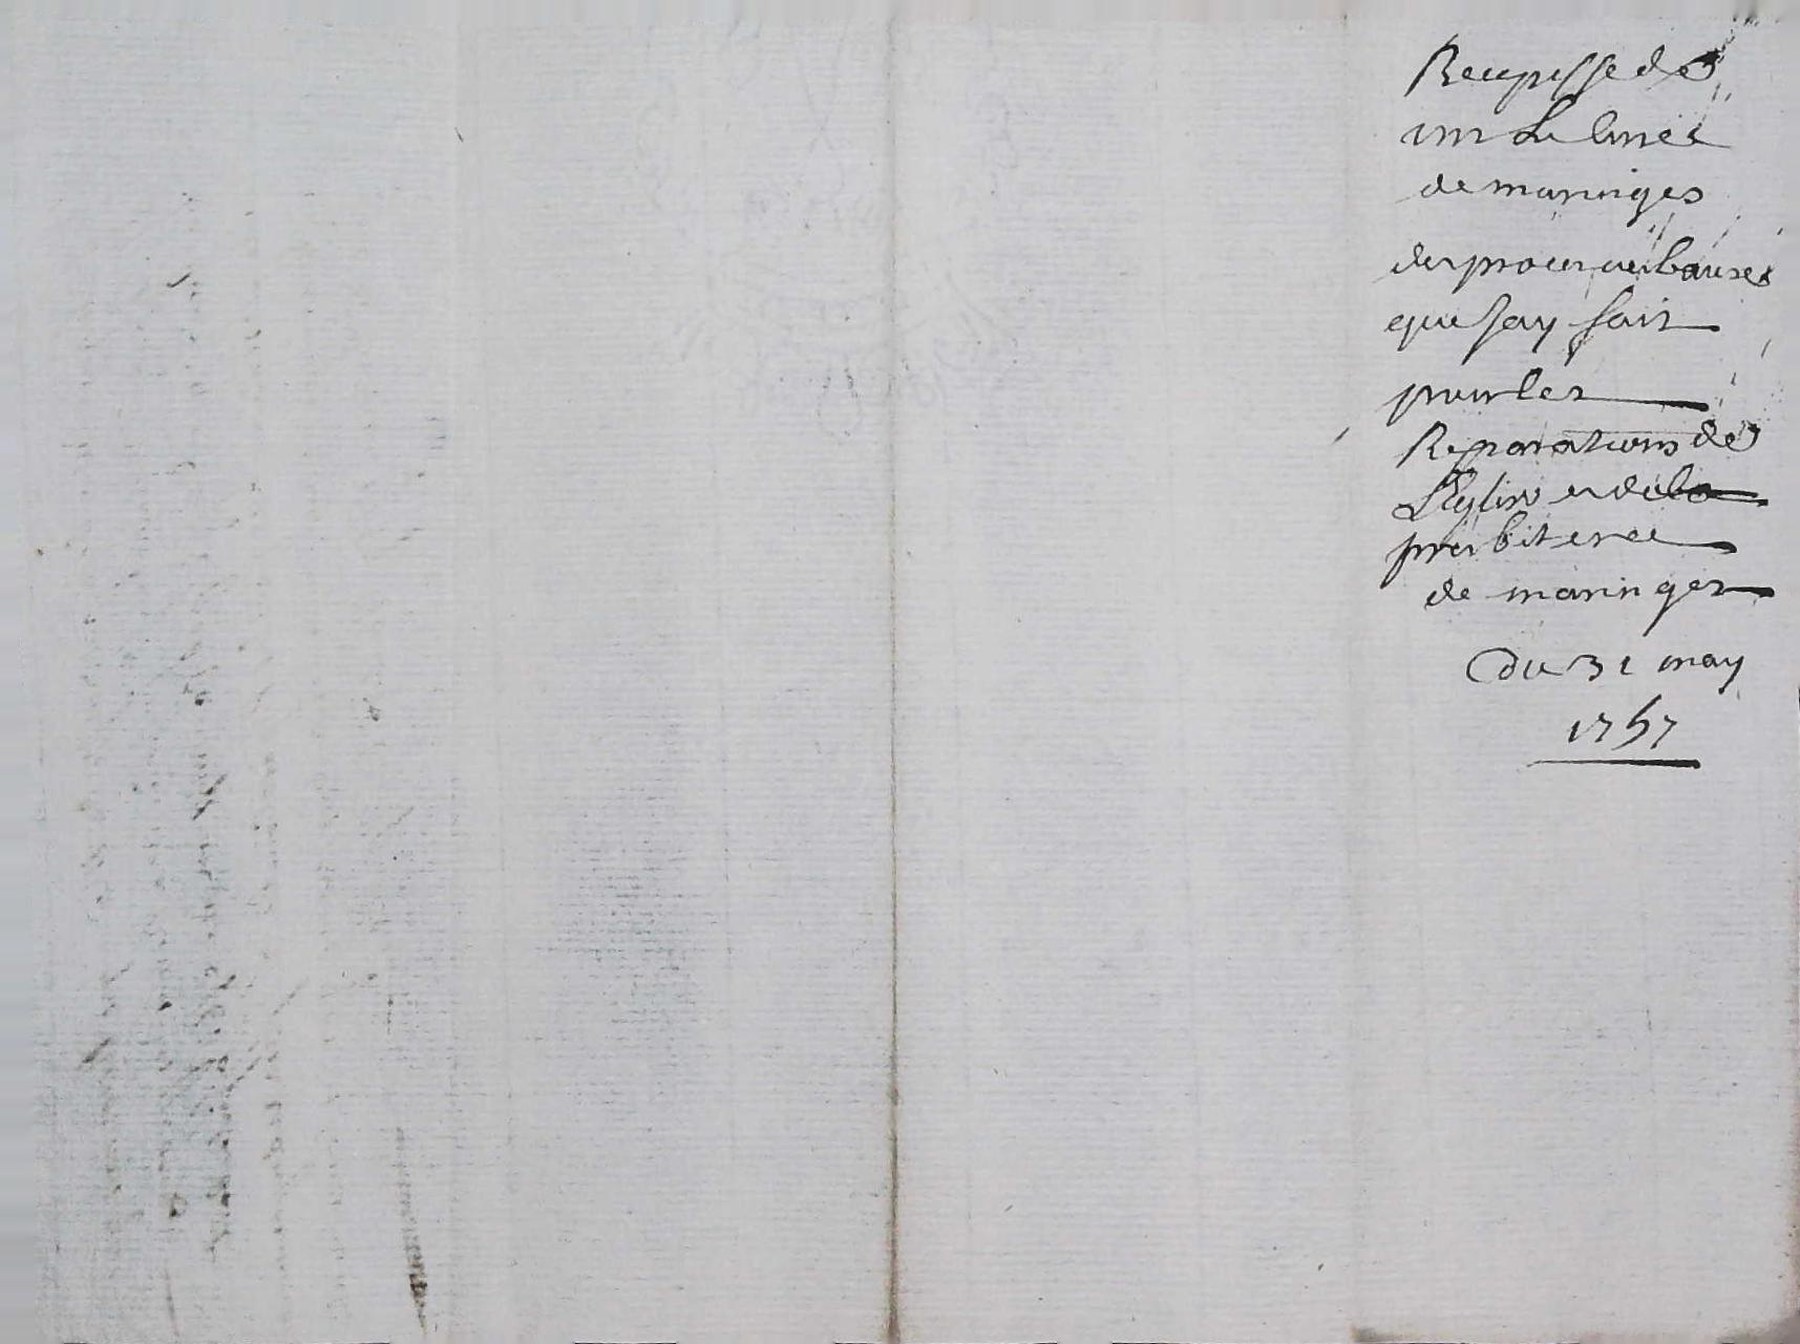 Recepisse de
mr Le Curé
de maringes
des proces verbauxes
que Jay fait
pour les
Reparations de
LEglise et dela
presbiteree
de maringes
du 31 may
1757